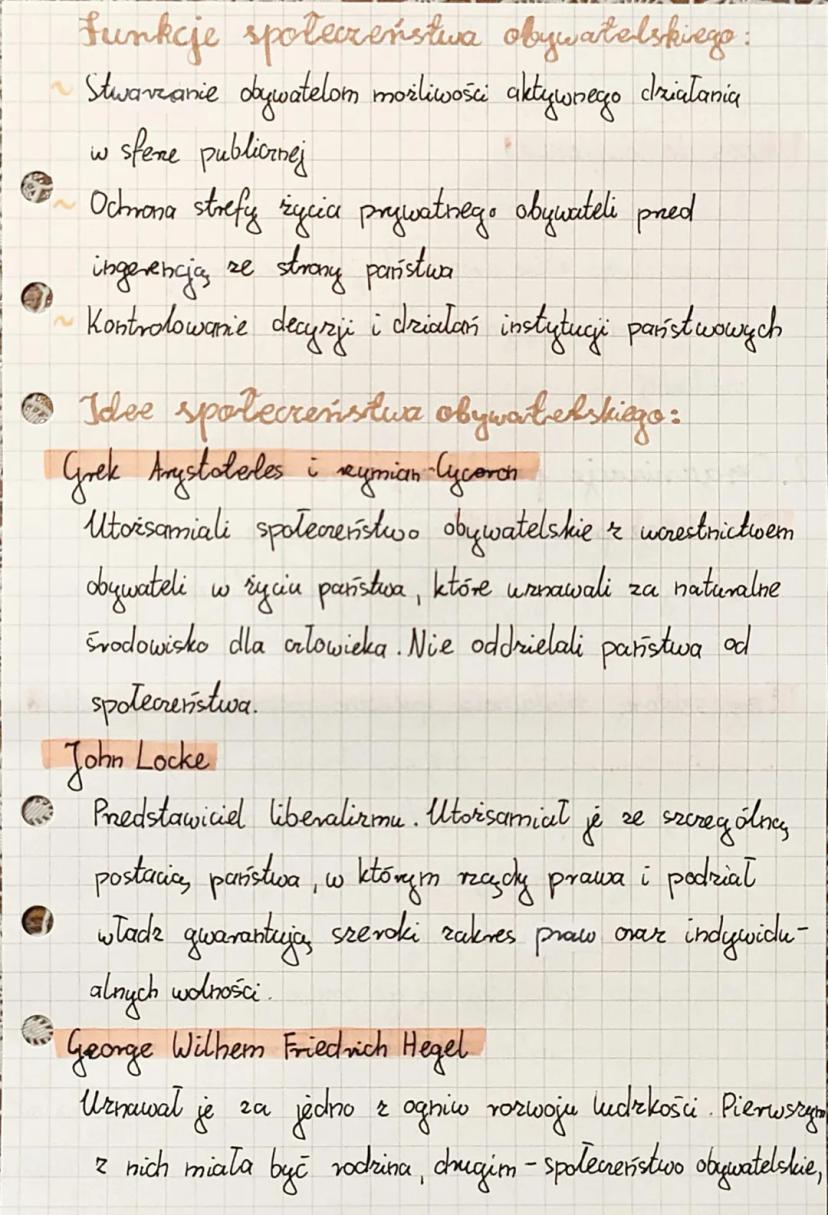 Funkcje społeczeństwa obywatelskiego:
~ Stwarzanie obywatelom możliwości aktywnego działania
w sferze publicznej
~ Ochrona strefy życia prywatnego obywateli przed
ingerencją ze strony państwa
~ Kontrolowanie decyzji i działań instytucji państwowych
Idee społeczeństwa obywatelskiego:
Grek Arystoteles i rzymian Cyceron
Utożsamiali społeczeństwo obywatelskie z uczestnictwem
obywateli w życiu państwa, które uznawali za naturalne
środowisko dla człowieka. Nie oddzielali państwa od
społeczeństwa.
John Locke
Przedstawiciel liberalizmu. Utożsamiał je ze szczególną
postacią państwa, w którym rządy prawa i podział
władz gwarantują szeroki zakres praw oraz indywidu-
alnych wolności.
George Wilhem Friedrich Hegel
Uznawał je za jedno z ogniw rozwoju ludzkości. Pierwszym
z nich miała być rodzina, drugim - społeczeństwo obywatelskie,